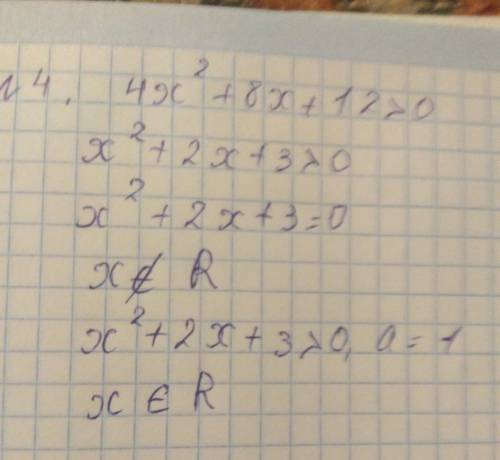 №4. 4x² + 8x + 12 > 0
x² + 2x + 3 > 0
x² + 2x + 3 = 0
x ∉ R
x² + 2x + 3 > 0, a = 1
x ∈ R